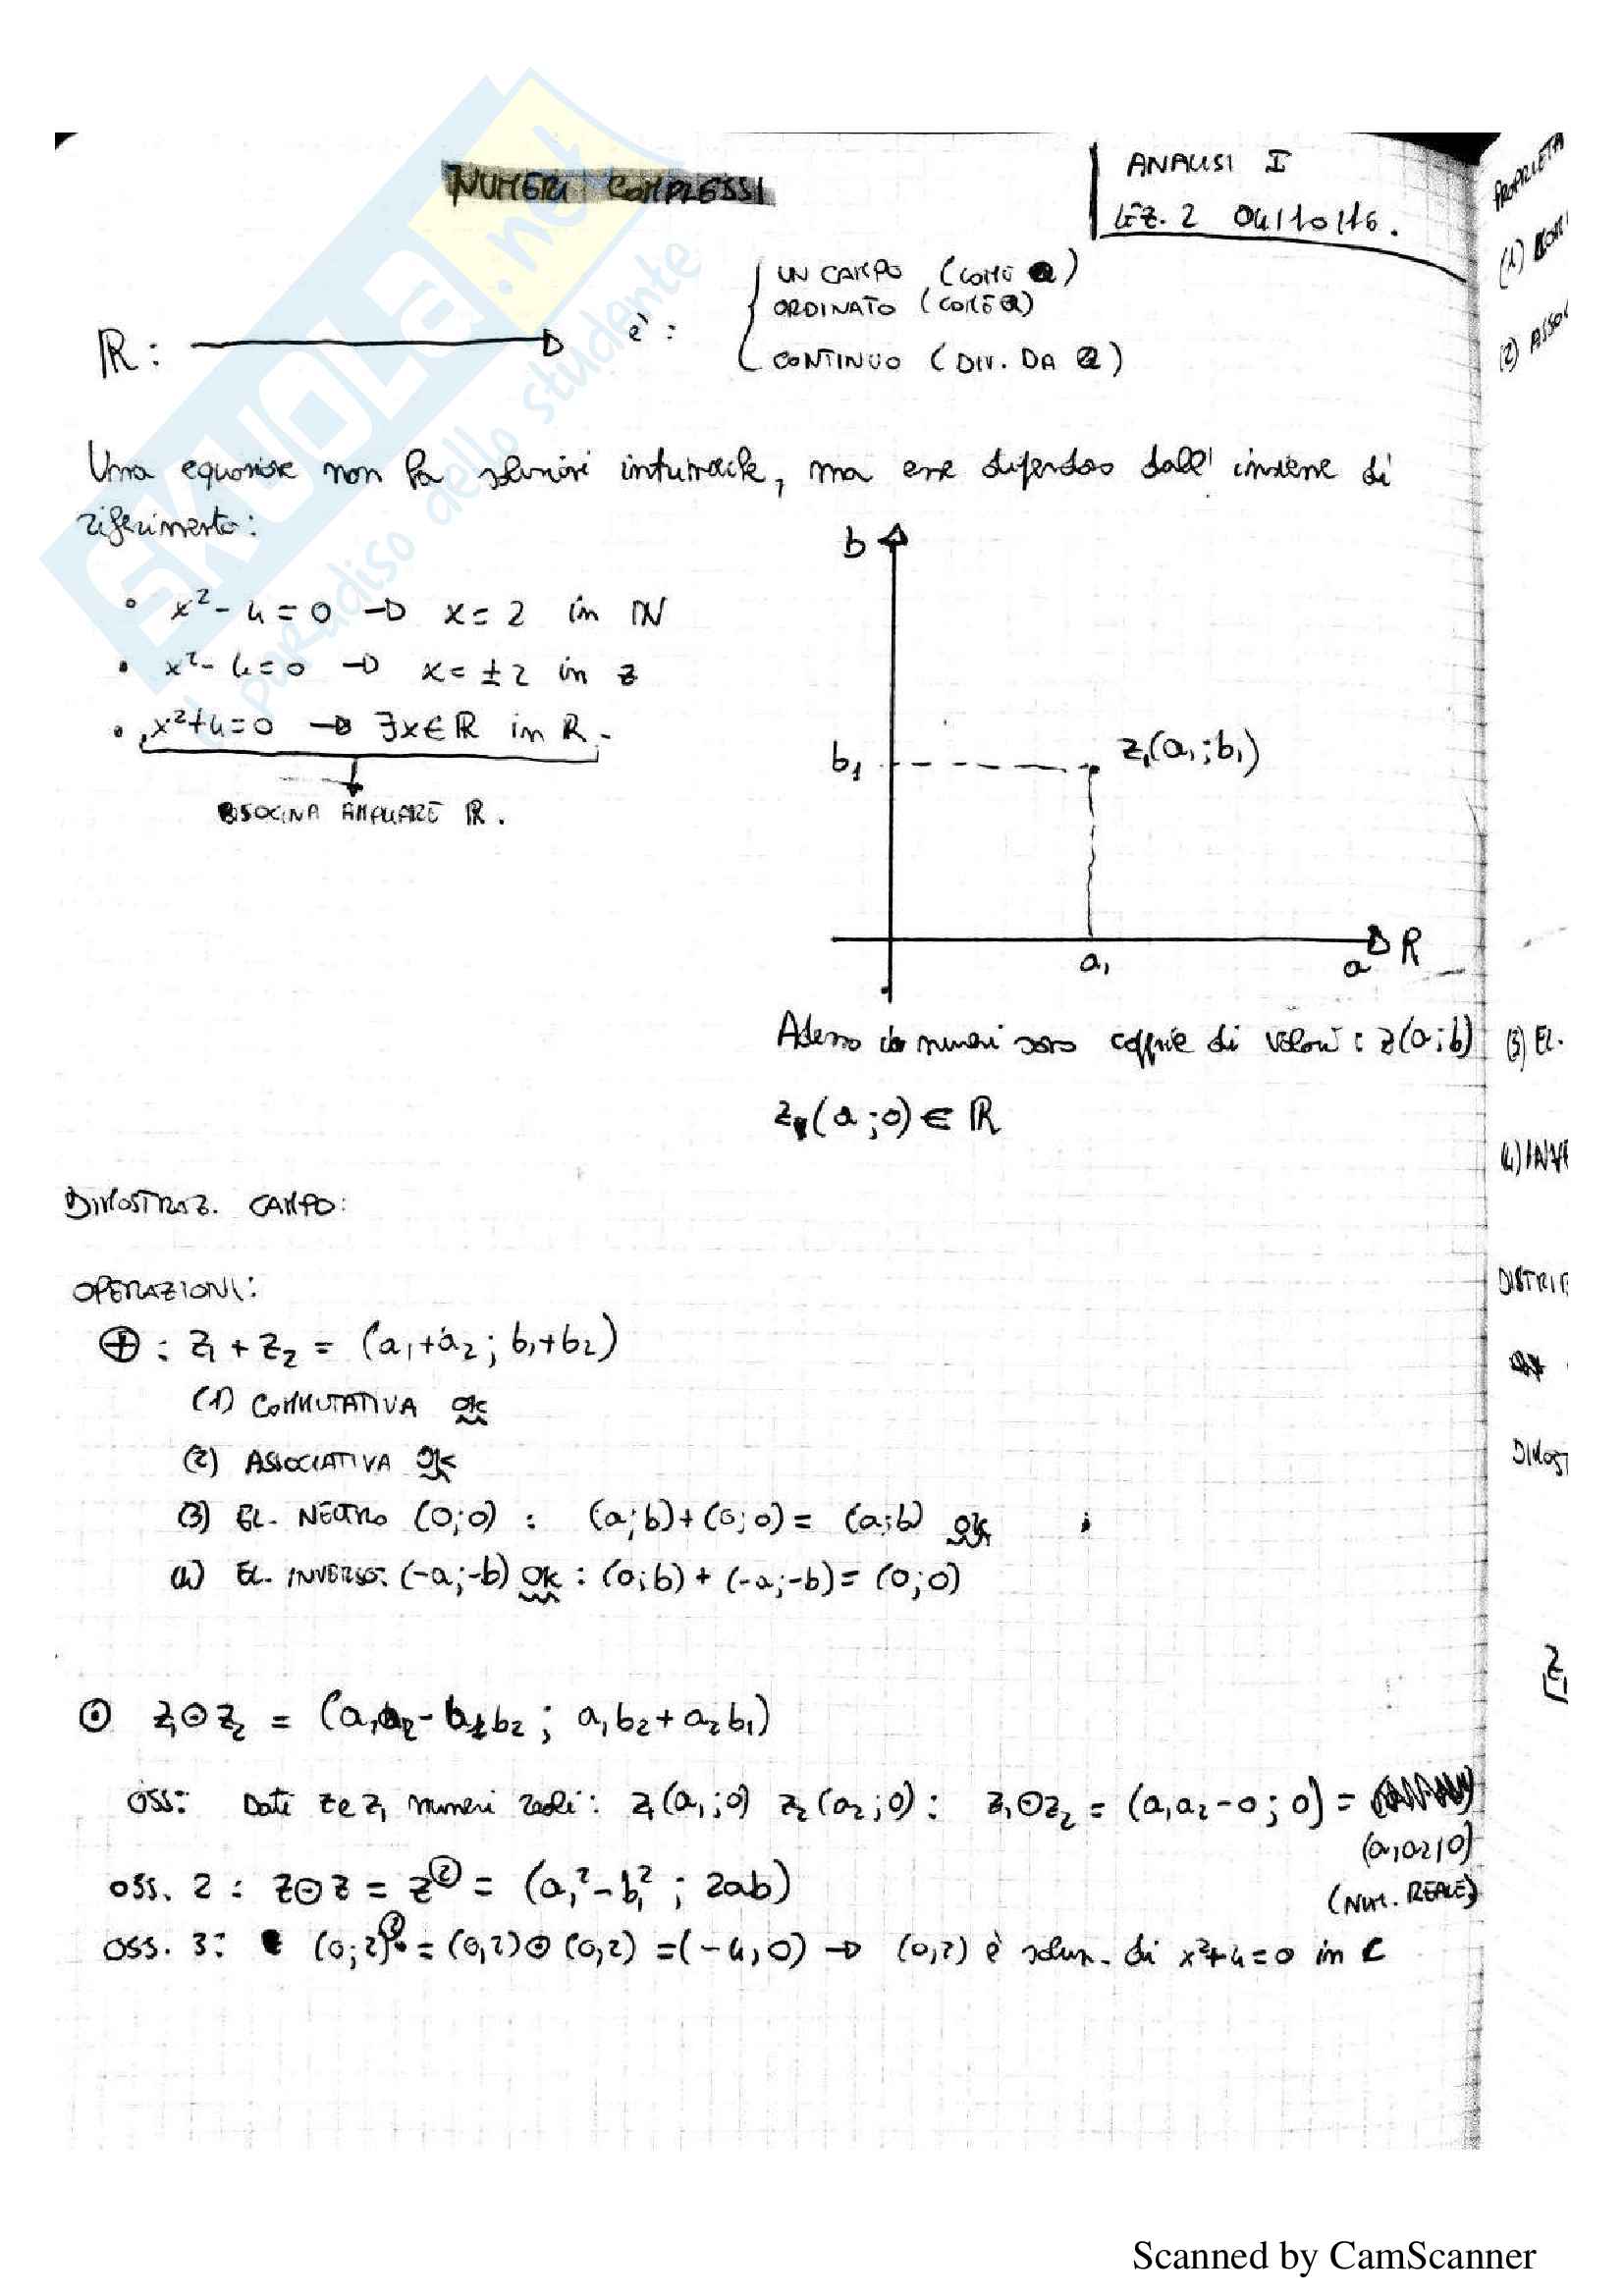 NUMERI COMPLESSI
ANALISI I
LEZ. 2 04/10/16.
ℝ: è:
UN CAMPO (COME Q)
ORDINATO (COME Q)
CONTINUO (DIV. DA Q)
Una equazione non ha soluzioni intrinseche, ma esse dipendono dall' insieme di
riferimento:
• x²-4=0 → x=2 in ℕ
• x²-4=0 → x=±2 in Z
• x²+4=0 → ∃x∈ℝ in ℝ.
BISOGNA AMPLIARE ℝ.
b
b₁
z₁(a₁;b₁)
a₁
a
R
Adesso i numeri sono coppie di valori: z(a;b)
z(a;0)∈ℝ
DIMOSTRAZ. CAMPO:
OPERAZIONI:
⊕: z₁+z₂ = (a₁+a₂; b₁+b₂)
(1) COMMUTATIVA ok
(2) ASSOCIATIVA ok
(3) EL. NEUTRO (0;0): (a;b)+(0;0)= (a;b) ok
(4) EL. INVERSO: (-a;-b) ok: (a;b)+(-a;-b)=(0;0)
⊙ z₁⊙z₂ = (a₁a₂-b₁b₂; a₁b₂+a₂b₁)
OSS: Dati z e z₁ numeri reali: z₁(a₁;0) z₂(a₂;0): z₁⊙z₂ = (a₁a₂-0;0) =
(a₁a₂;0)
(NUM. REALE)
OSS. 2: z⊙z = z② = (a₁²-b₁²; 2ab)
OSS. 3: (0;2)② = (0,2)⊙(0,2) =(-4,0) → (0,2) è soluz. di x²+4=0 in C
PROPRIETÀ
(1)
(2) ASSO
(3) EL.
(4) INVE
DISTRIB
DIMOST
SKUOLA.net
il paradiso dello studente
Scanned by CamScanner